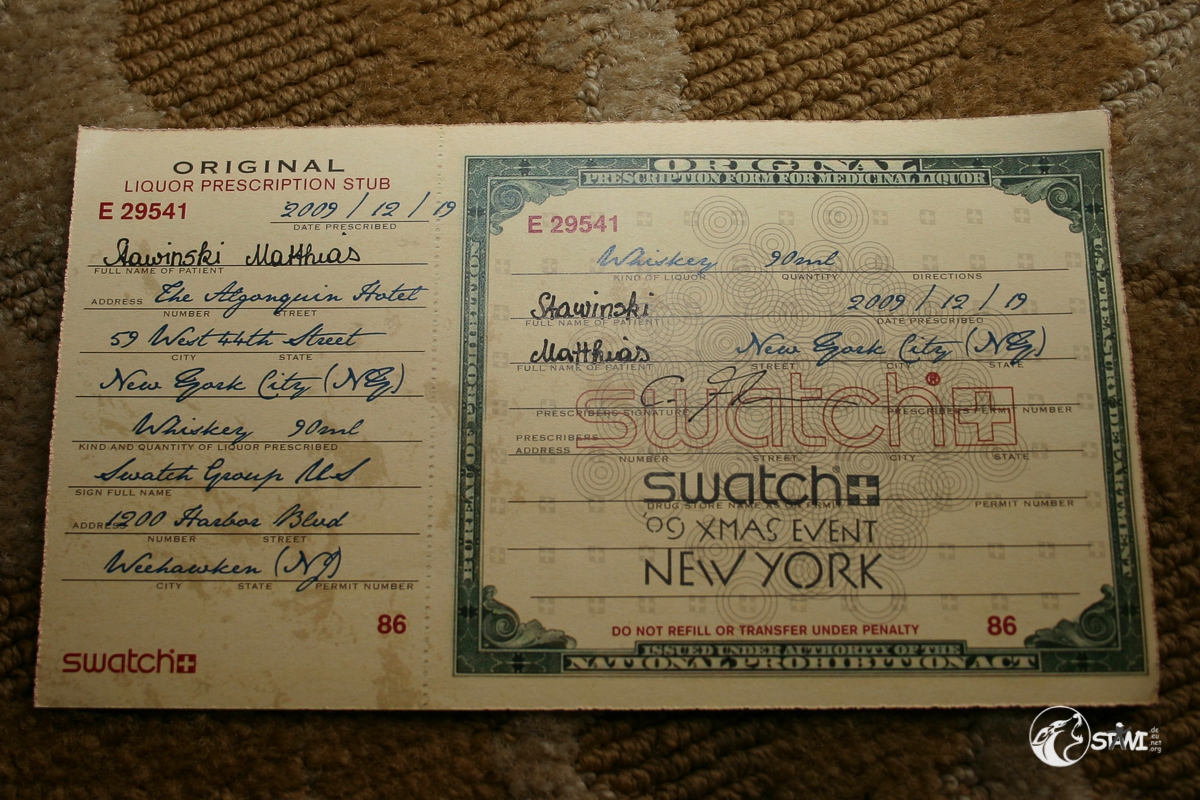 ORIGINAL
LIQUOR PRESCRIPTION STUB
E 29541 2009 / 12 / 19
DATE PRESCRIBED
Stawinski Matthias
FULL NAME OF PATIENT
ADDRESS The Algonquin Hotel
NUMBER STREET
59 West 44th Street
CITY STATE
New York City (NY)
Whiskey 90ml
KIND AND QUANTITY OF LIQUOR PRESCRIBED
Swatch Group US
SIGN FULL NAME
ADDRESS 1200 Harbor Blvd
NUMBER STREET
Weehawken (NJ)
CITY STATE PERMIT NUMBER
86
swatch
ORIGINAL
PRESCRIPTION FORM FOR MEDICINAL LIQUOR
E 29541
Whiskey 90ml
KIND OF LIQUOR QUANTITY DIRECTIONS
Stawinski 2009 / 12 / 19
FULL NAME OF PATIENT DATE PRESCRIBED
Matthias New York City (NY)
FULL NAME OF PATIENT STREET CITY STATE
swatch®
PRESCRIBERS SIGNATURE PRESCRIBERS PERMIT NUMBER
PRESCRIBERS
ADDRESS
NUMBER STREET CITY STATE
swatch
DRUG STORE NAME AS ON PERMIT PERMIT NUMBER
'09 XMAS EVENT
NEW YORK
DO NOT REFILL OR TRANSFER UNDER PENALTY 86
ISSUED UNDER AUTHORITY OF THE
NATIONAL PROHIBITION ACT
STAWI .de .eu .net .org